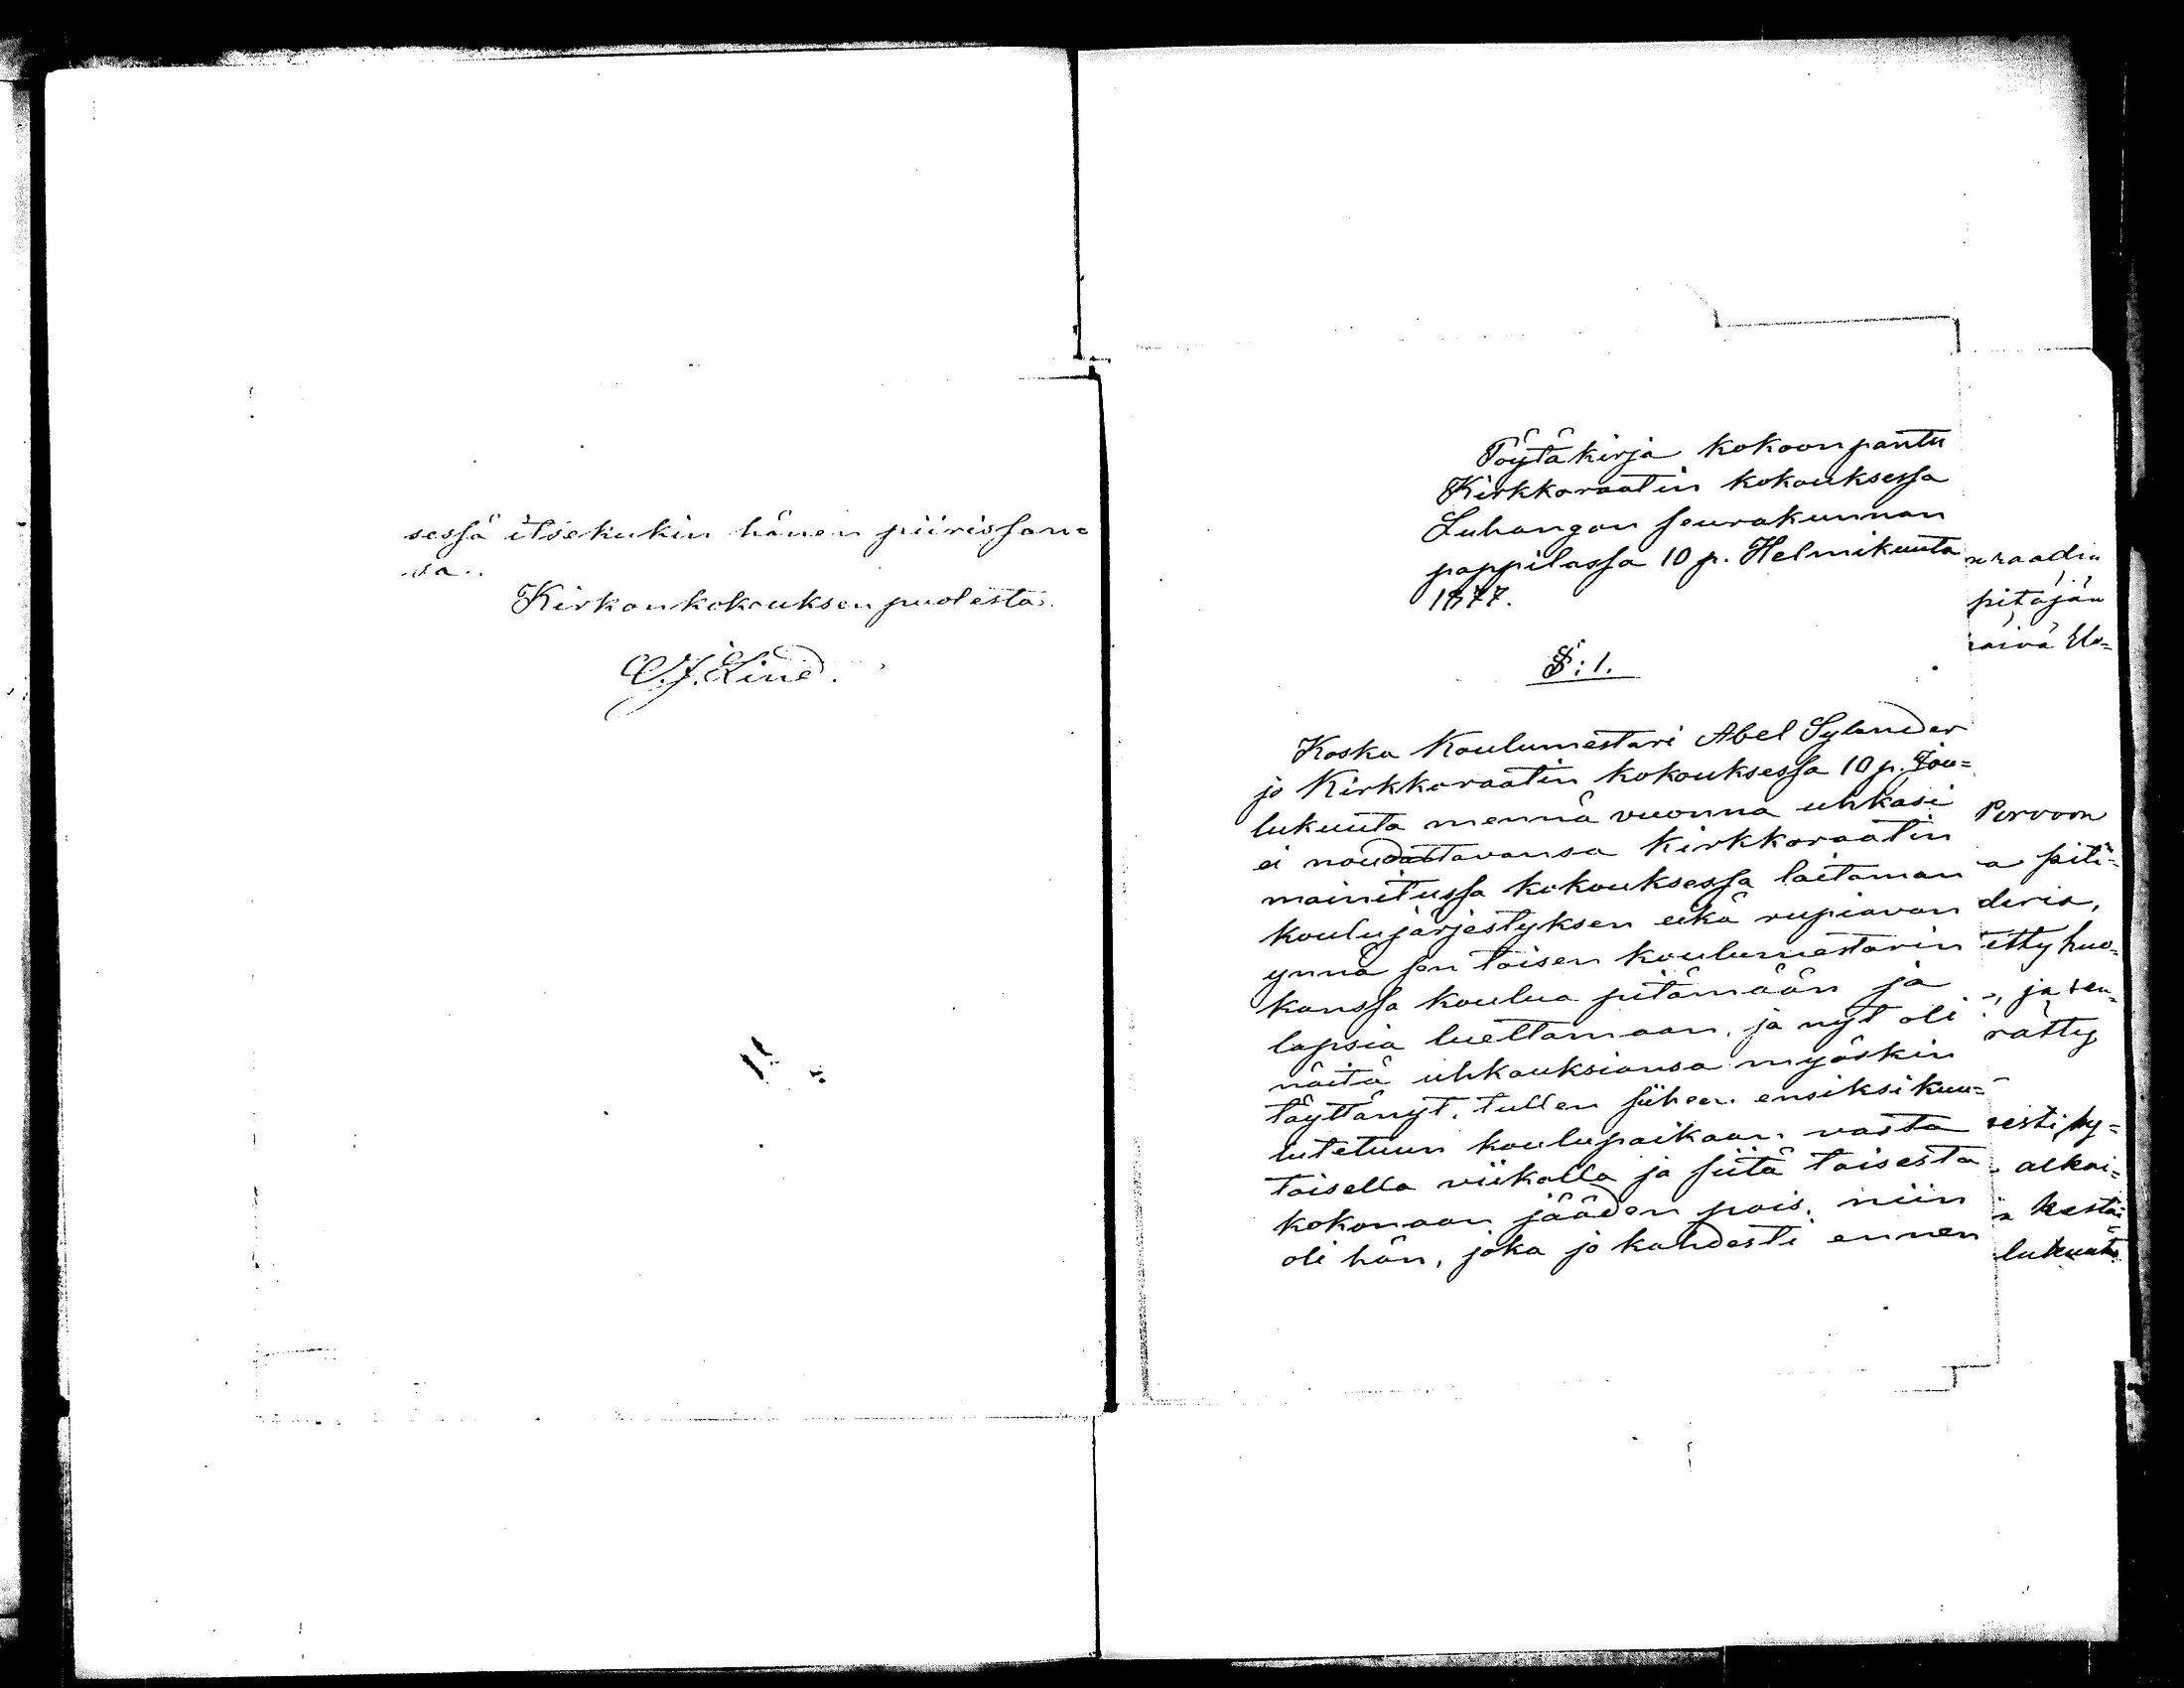 sessä itsekukin hänen piirissän=
sä.
Kirkonkokouksen puolesta.
C.J. Lind.
Pöytäkirja kokoonpantu
Kirkkoraatin kokouksessa
Luhangan seurakunnan
pappilassa 10 p. Helmikuuta
1877.
§: 1.
Koska Koulumestari Abel Sylander
jo Kirkkoraatin kokouksessa 10 p. Jou=
lukuuta mennä vuonna uhkasi
ei noudattavansa Kirkkoraatin
mainitussa kokouksessa laitaman
koulujärjestyksen eikä rupiavan
ynnä sen toisen koulumestarin
kanssa koulua pitämään ja
lapsia luettamaan, ja nyt oli
näitä uhkauksiansa myöskin
täyttänyt, tullen siihen ensiksi kuu=
lutetuun koulupaikaan vasta
toisella viikolla ja siitä toisesta
kokonaan jääden pois, niin
oli hän, joka jo kahdesti ennen
raadin
pitäjän
äivä Elo=
Porvoon
a pitä=
deria,
etty huo=
, ja sen=
rätty
sesti, hy=
alkai=
kestä
lukuuta